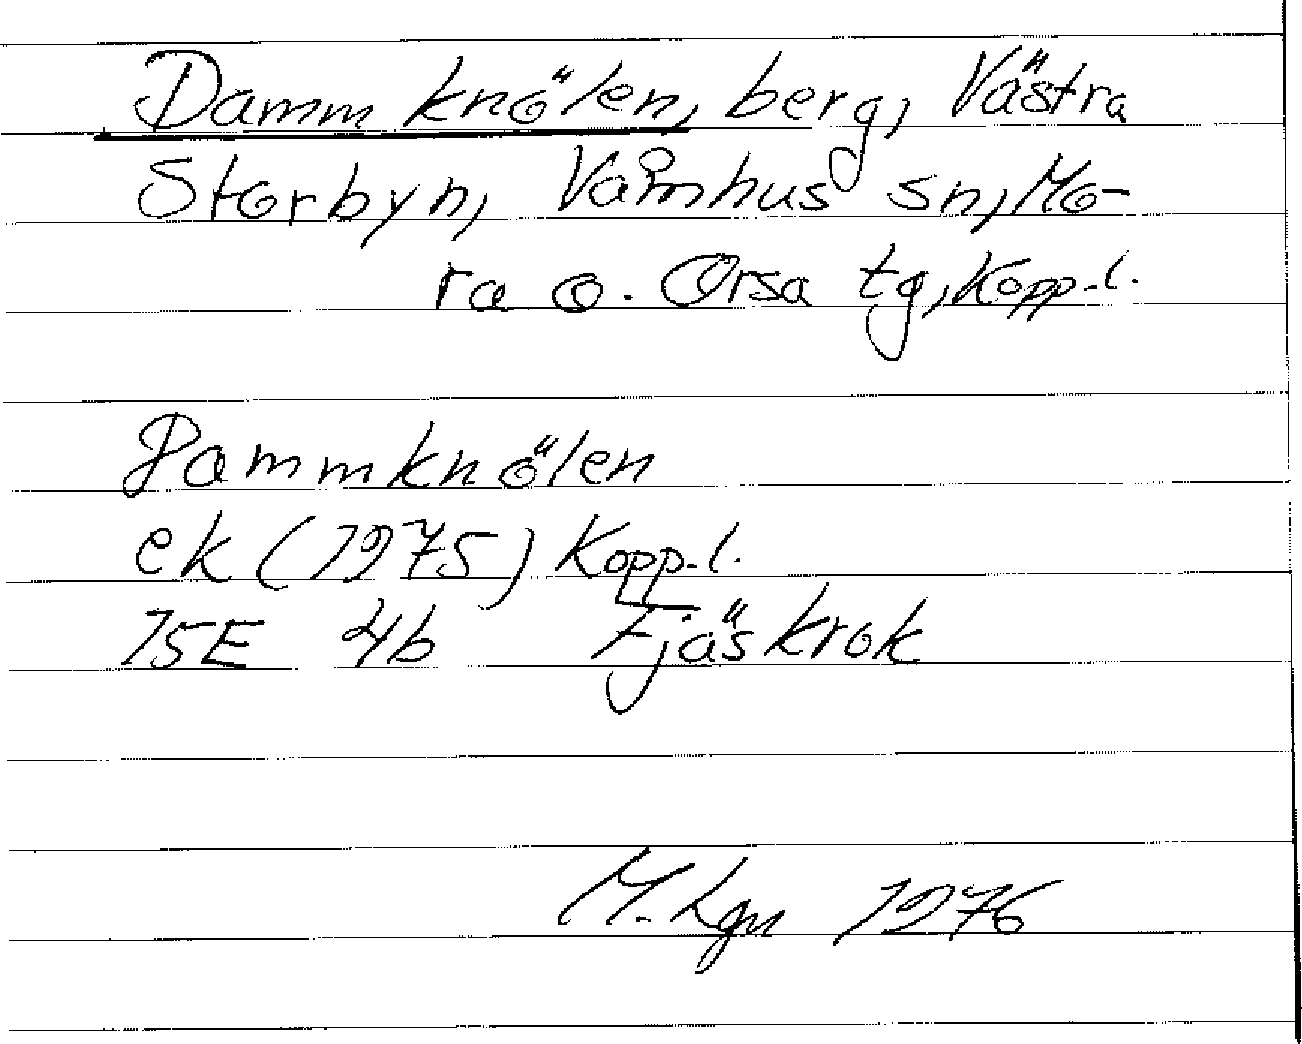 Dammknölen, berg, Västra
Storbyn, Våmhus sn, Mo-
ra o. Orsa tg, Kopp.l.
Dammknölen
ek (1975) Kopp.l.
15E 4b Fjäskrok
M. Lgn 1976